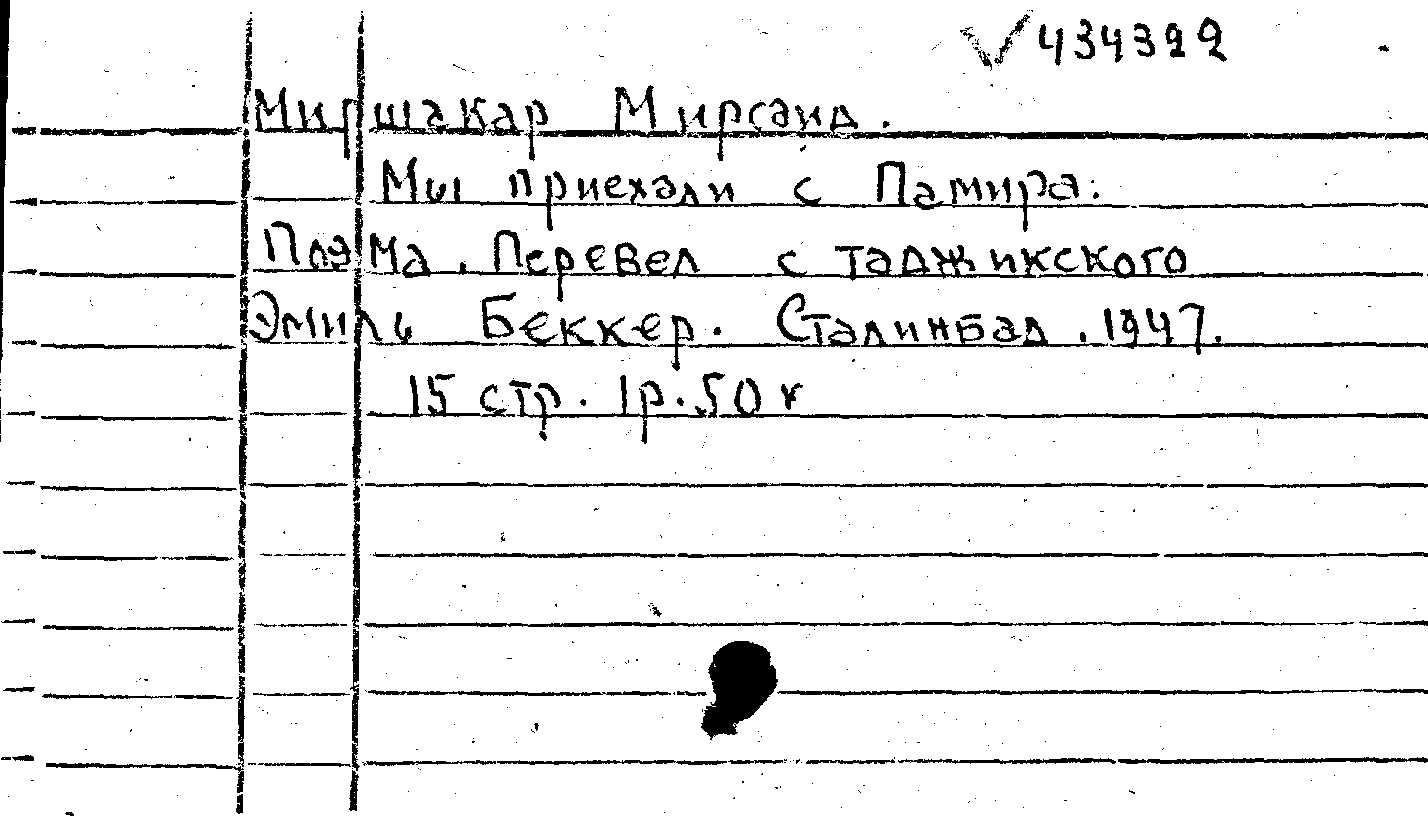 √434392
Миршакар Мирсаид.
Мы приехали с Памира.
Поэма. Перевел с таджикского
Эмиль Беккер. Сталинбад. 1947.
15 стр. 1р. 50 к